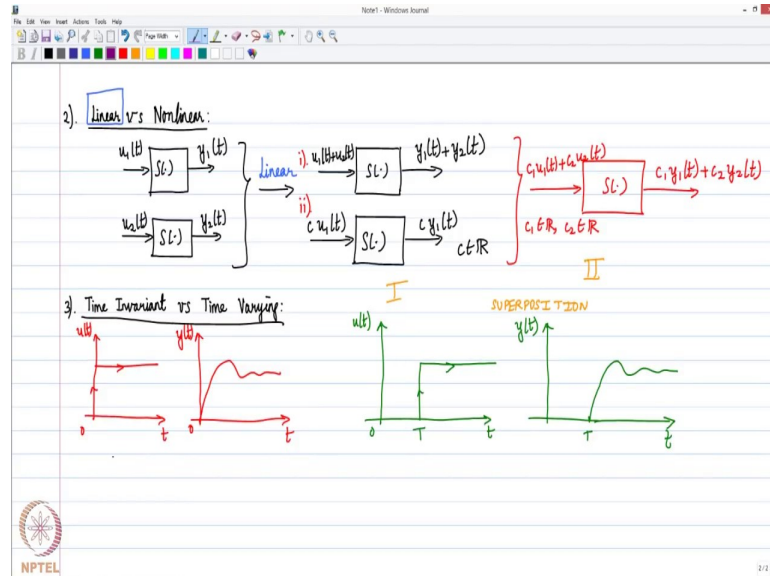 Note1 - Windows Journal
File Edit View Insert Actions Tools Help
Page Width
B I
2). Linear vs Nonlinear:
u₁(t) S(.) y₁(t)
u₂(t) S(.) y₂(t)
Linear
i). u₁(t)+u₂(t) S(.) y₁(t)+y₂(t)
ii) c u₁(t) S(.) c y₁(t)
c∈ℝ
I
c₁u₁(t)+c₂u₂(t) S(.) c₁y₁(t)+c₂y₂(t)
c₁∈ℝ, c₂∈ℝ
II
SUPERPOSITION
3). Time Invariant vs Time Varying:
u(t) 0 t
y(t) 0 t
u(t) 0 T t
y(t) T t
NPTEL
2/2